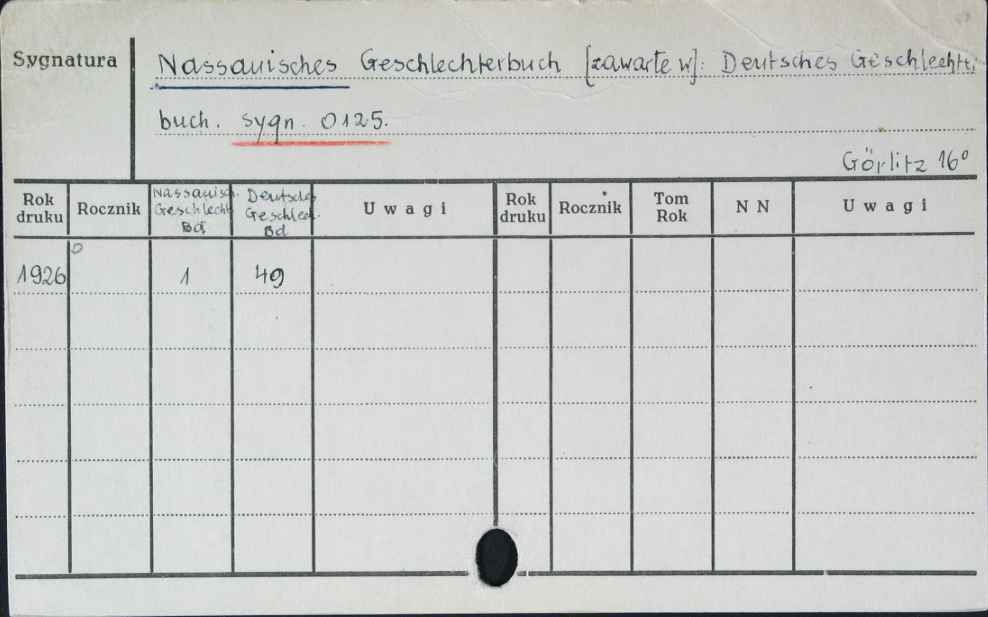 Sygnatura
Nassauisches Geschlechterbuch [zawarte w]: Deutsches Geschlechter
buch. sygn. 0125.
Görlitz 16°
Rok druku Rocznik Nassauisch. Geschlecht Bd Deutsche Geschlech. Bd Uwagi Rok druku Rocznik Tom Rok NN Uwagi
1926 1 49